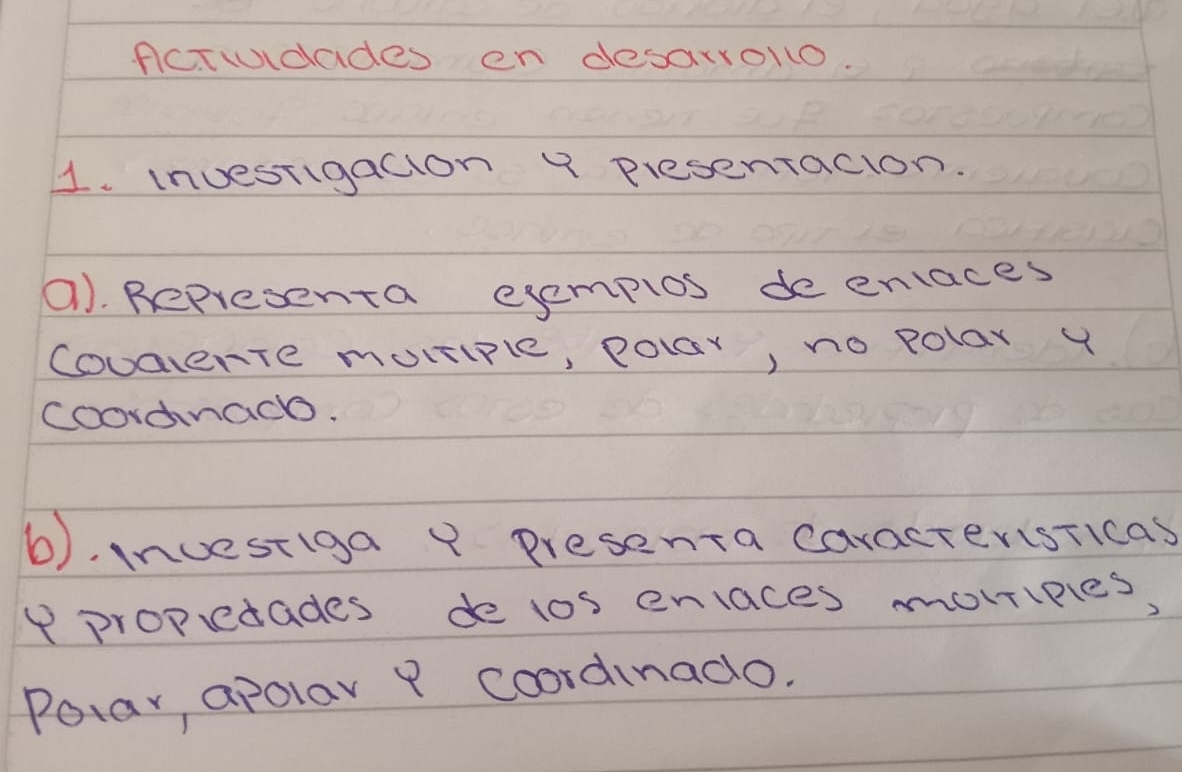 Actividades en desarrollo.
1. investigacion y presentacion.
a). Representa ejemplos de enlaces
Covalente multiple, polar, no polar y
coordinado.
b). investiga y presenta caracteristicas
y propiedades de los enlaces moltiples,
Polar, apolar y coordinado.